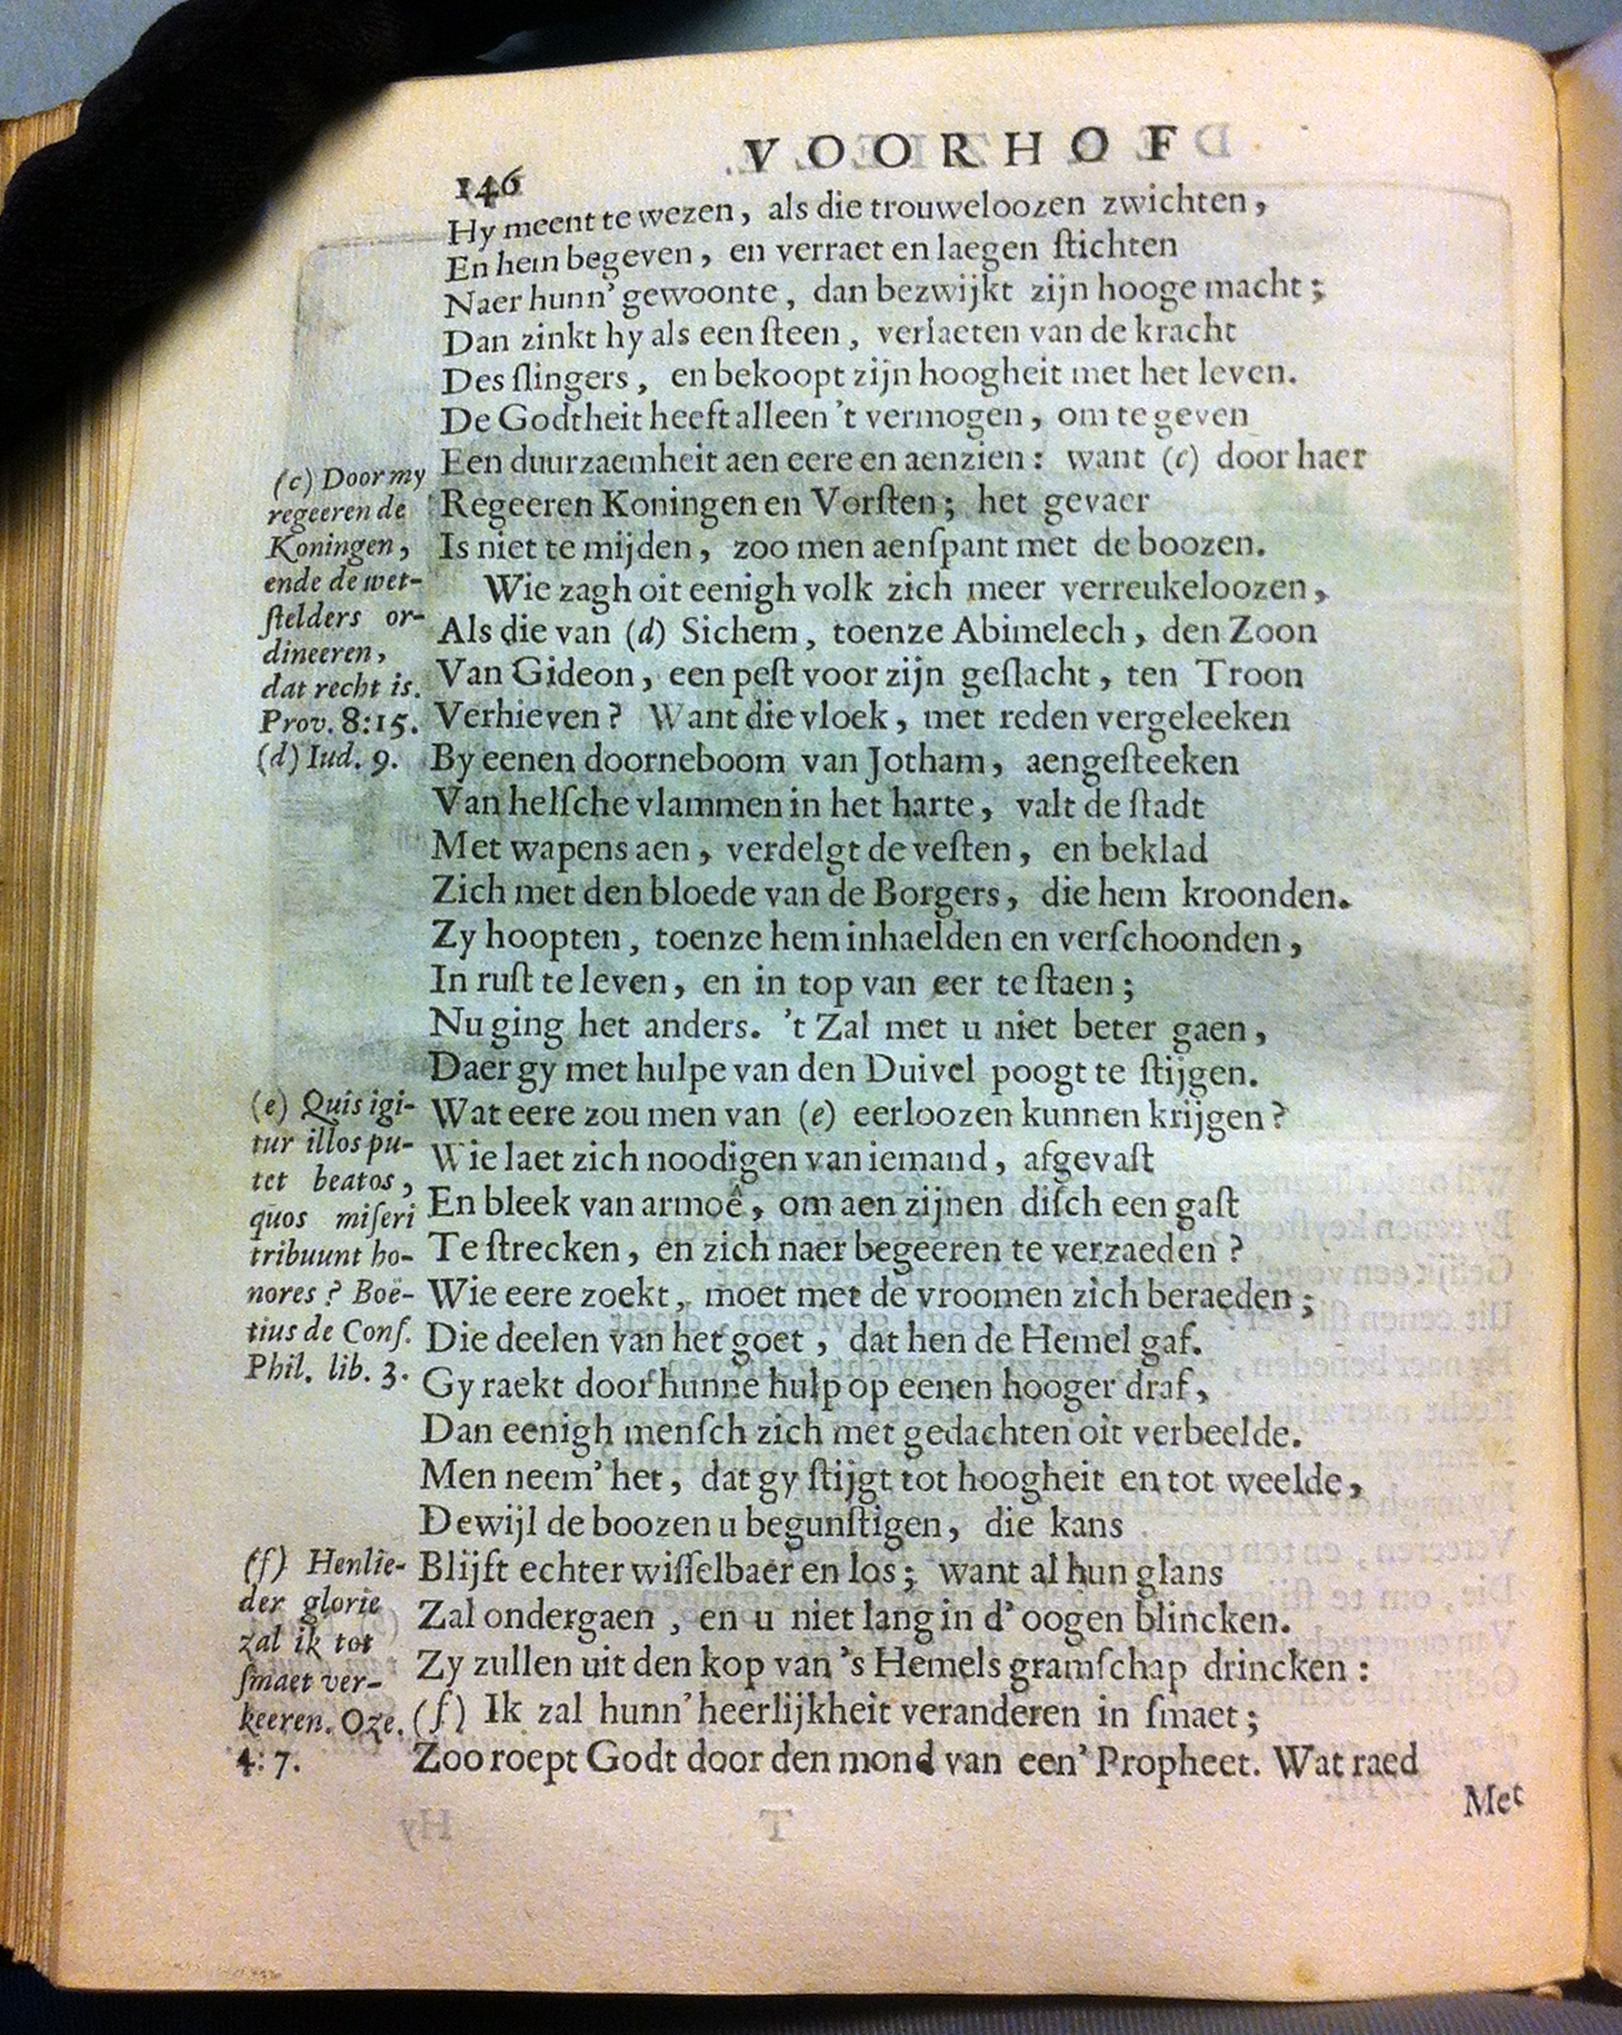 VOORHOF
146
Hy meent te wezen, als die trouweloozen zwichten,
En hem begeven, en verraet en laegen ſtichten
Naer hunn' gewoonte, dan bezwijkt zijn hooge macht;
Dan zinkt hy als een ſteen, verlaeten van de kracht
Des ſlingers, en bekoopt zijn hoogheit met het leven.
De Godtheit heeft alleen 't vermogen, om te geven
Een duurzaemheit aen eere en aenzien: want (c) door haer
Regeeren Koningen en Vorſten; het gevaer
Is niet te mijden, zoo men aenſpant met de boozen.
Wie zagh oit eenigh volk zich meer verreukeloozen,
Als die van (d) Sichem, toenze Abimelech, den Zoon
Van Gideon, een peſt voor zijn geſlacht, ten Troon
Verhieven? Want die vloek, met reden vergeleeken
By eenen doorneboom van Jotham, aengeſteeken
Van helſche vlammen in het harte, valt de ſtadt
Met wapens aen, verdelgt de veſten, en beklad
Zich met den bloede van de Borgers, die hem kroonden.
Zy hoopten, toenze hem inhaelden en verſchoonden,
In ruſt te leven, en in top van eer te ſtaen;
Nu ging het anders. 't Zal met u niet beter gaen,
Daer gy met hulpe van den Duivel poogt te ſtijgen.
Wat eere zou men van (e) eerloozen kunnen krijgen?
Wie laet zich noodigen van iemand, afgevaſt
En bleek van armoê, om aen zijnen diſch een gaſt
Te ſtrecken, en zich naer begeeren te verzaeden?
Wie eere zoekt, moet met de vroomen zich beraeden;
Die deelen van het goet, dat hen de Hemel gaf.
Gy raekt door hunne hulp op eenen hooger draf,
Dan eenigh menſch zich met gedachten oit verbeelde.
Men neem' het, dat gy ſtijgt tot hoogheit en tot weelde,
Dewijl de boozen u begunſtigen, die kans
Blijft echter wiſſelbaer en los; want al hun glans
Zal ondergaen, en u niet lang in d' oogen blincken.
Zy zullen uit den kop van 's Hemels gramſchap drincken:
(f) Ik zal hunn' heerlijkheit veranderen in ſmaet;
Zoo roept Godt door den mond van een' Propheet. Wat raed
Met
(c) Door my
regeeren de
Koningen,
ende de wet-
ſtelders or-
dineeren,
dat recht is.
Prov. 8:15.
(d) Iud. 9.
(e) Quis igi-
tur illos pu-
tet beatos,
quos miſeri
tribuunt ho-
nores? Boë-
tius de Conſ.
Phil. lib. 3.
(f) Henlie-
der glorie
zal ik tot
ſmaet ver-
keeren. Oze.
4:7.